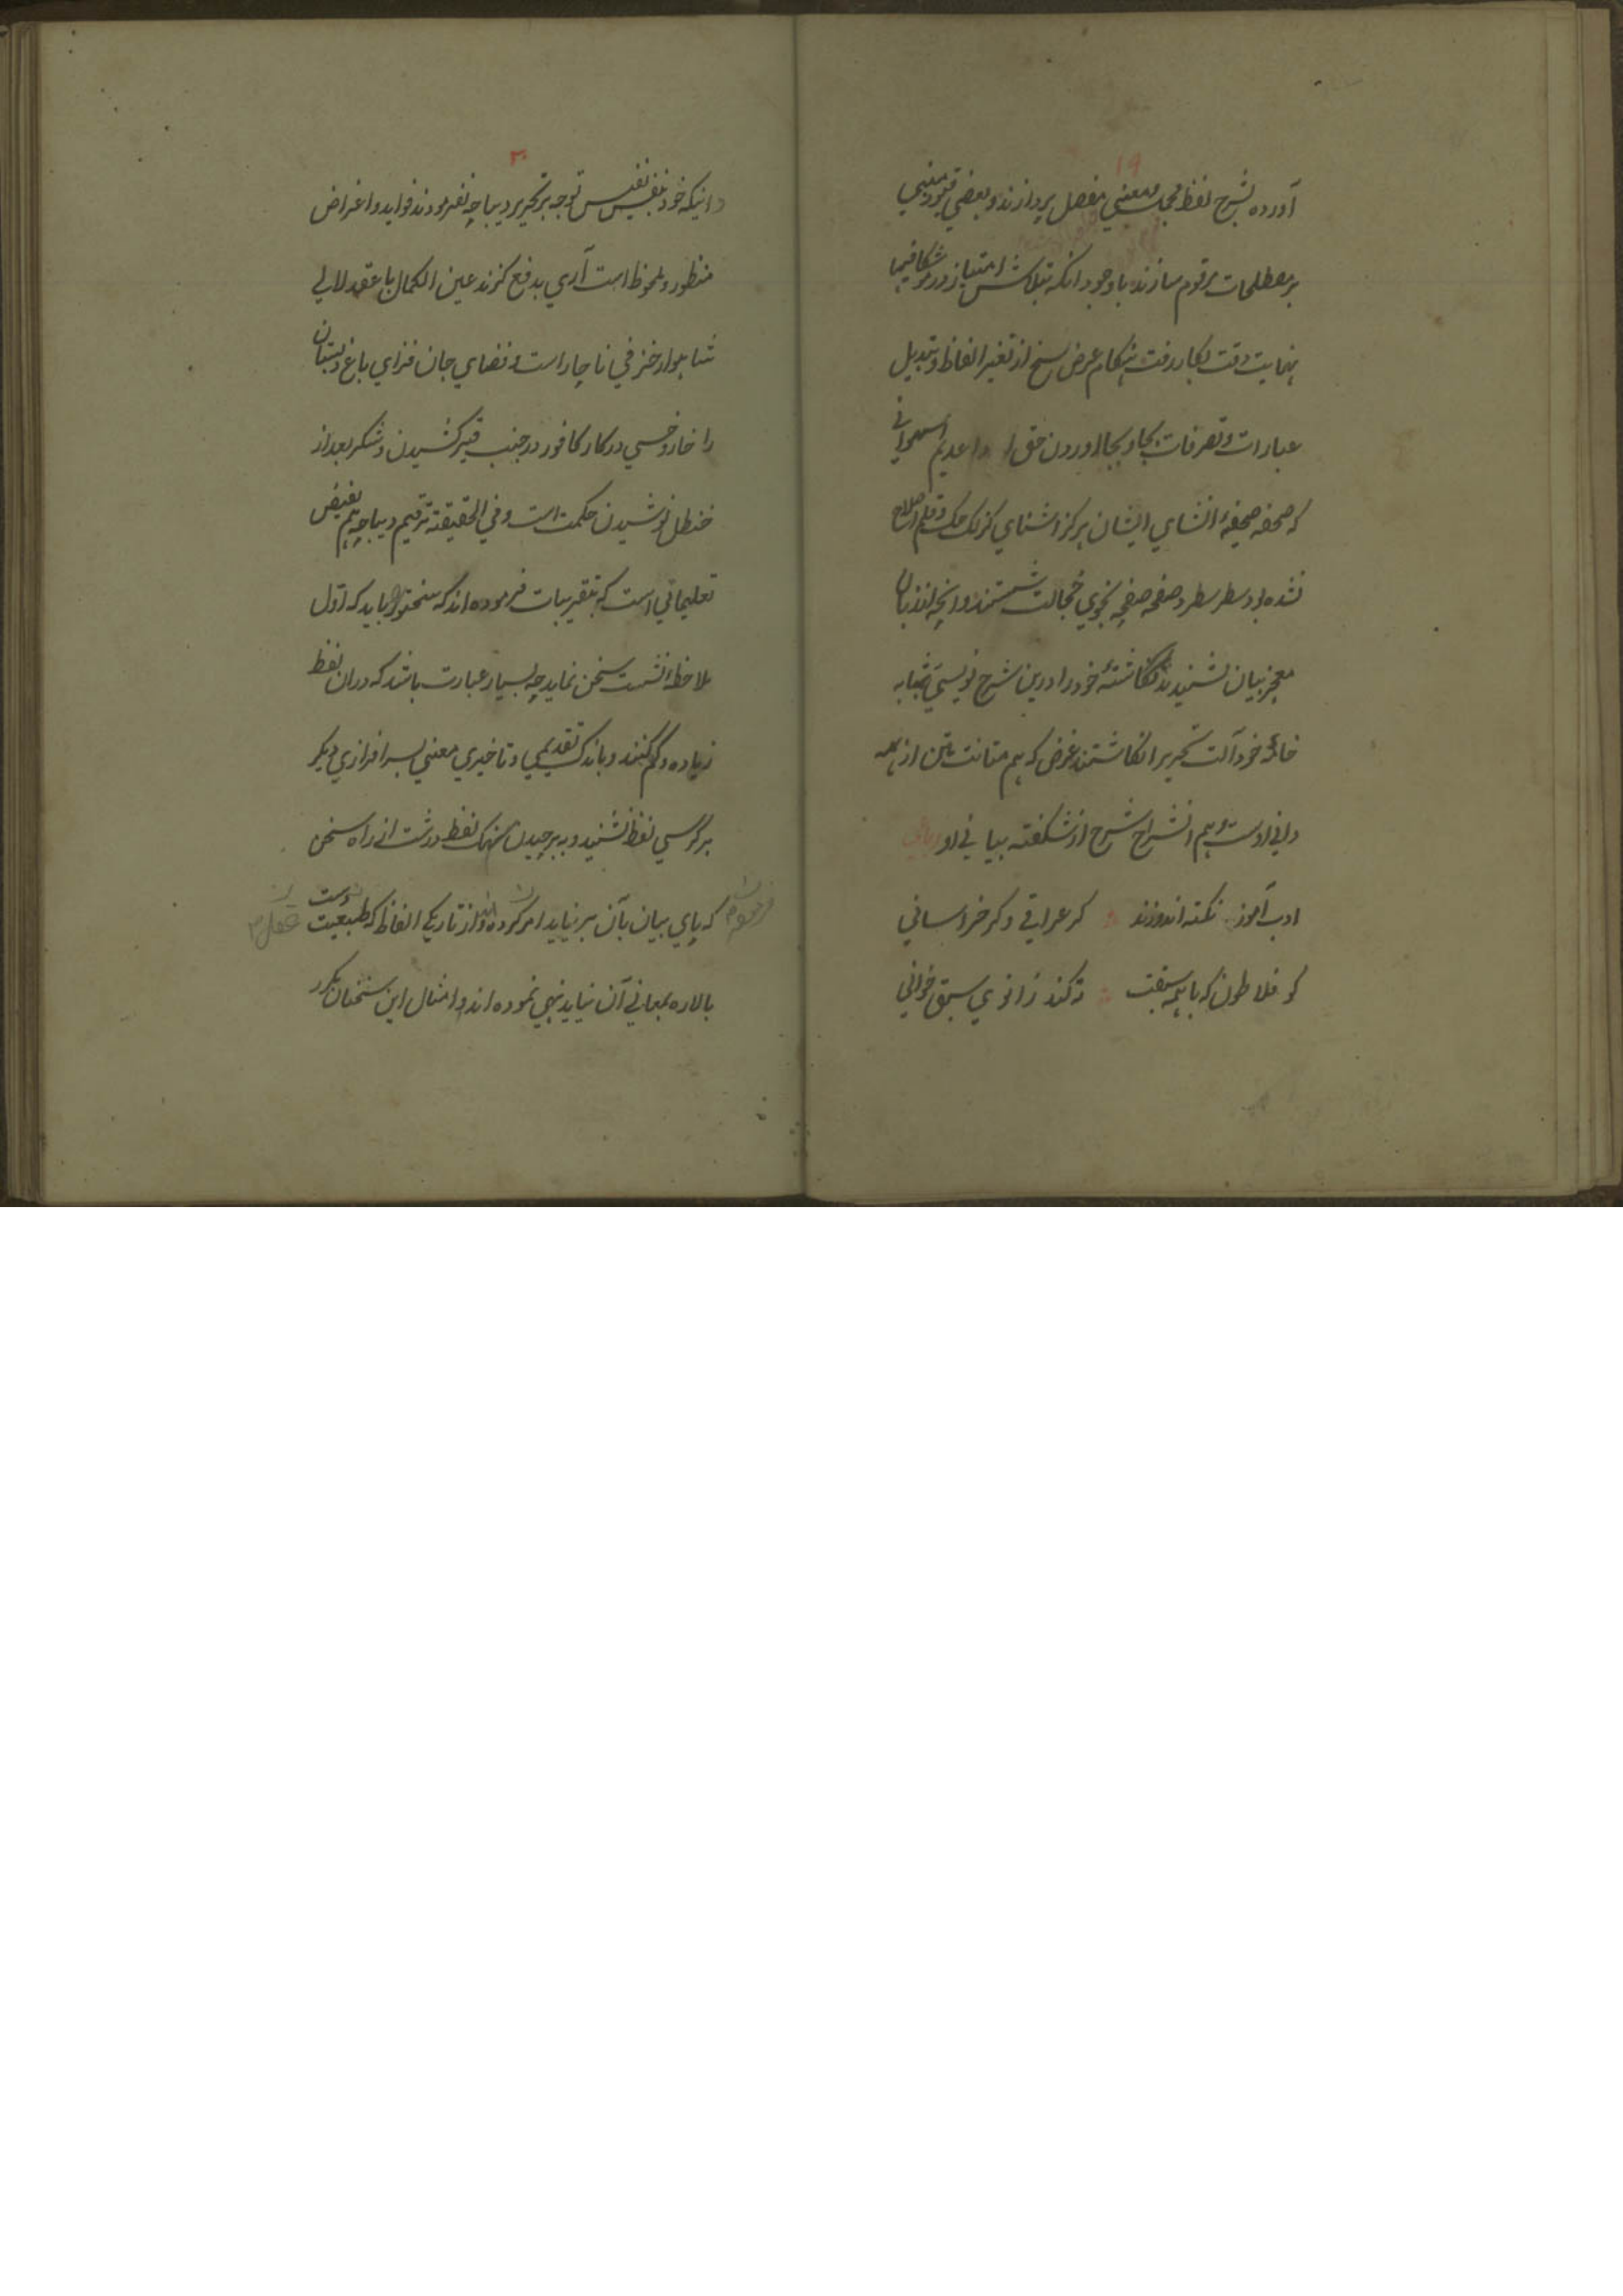 ۱۹
آورده بشرح لفظ مجمل بمعنی مفصل پردازند و بعضی قیود مبنی
بر مصطلحات مرقوم سازند باوجود انکه بتلاش امتیاز در موشکافیها
نهایت دقت بکار رفت هنکام عرض نسخ از تغیر الفاظ و تبدیل
عبارات و تصرفات بجا و بیجا اوردن حق را و اعدیم السهوانی
که صحفه صحیفهٔ انشای ایشان هرکز اشنای کزلک حک و قلم اصلاح
نشده بود سطر سطر و صفحه صفحه بخوی خجالت شستند و انچه از زبان
معجز بیان شنیدند نکاشتهٔ خود را درین شرح نویسی بمثابه
خامهٔ خود آلت تحریر انکاشتند غرض که هم متانت متن از همه
دانی اوست و هم انشراح شرح از شکفته بیانی او رباعی
ادب آموز نکته اندوزند کر عراقی و کر خراسانی
کو فلاطون که با همه سبقت ته کند زانوی سبق خوانی
۲۰
و اینکه خود بنفس نفیس توجه بر تحریر دیباچه نفرمودند فواید و اغراض
منظور و ملحوظ است آری بدفع کزند عین الکمال با عقد لالی
شاهوار خزفی ناچار است و فضای جان فزای باغ و بستان
را خار و خسی در کار کافور در جنب قیر کشیدن و شکر بعد از
حنظل نوشیدن حکمت است و فی الحقیقة ترقیم دیباچه هم بفیض
تعلیماتی است که بتقریبات فرموده اند که سخنور را باید که اول
ملاحظهٔ نشست سخن نماید چه بسیار عبارت باشد که دران لفظ
زیاده و کم کنند و باندک تقدیمی و تاخیری معنی بسرافرازی دیکر
بر کرسی لفظ نشیند و به برچیدن سنک لفظ درشت از راه سخن
که پای بیان بآن برنیاید امر کرده اند و از تاریکی الفاظ که دست طبیعت
بالاره بمعانی آن نیابد نهی نموده اند و امثال این سخنان مکرر